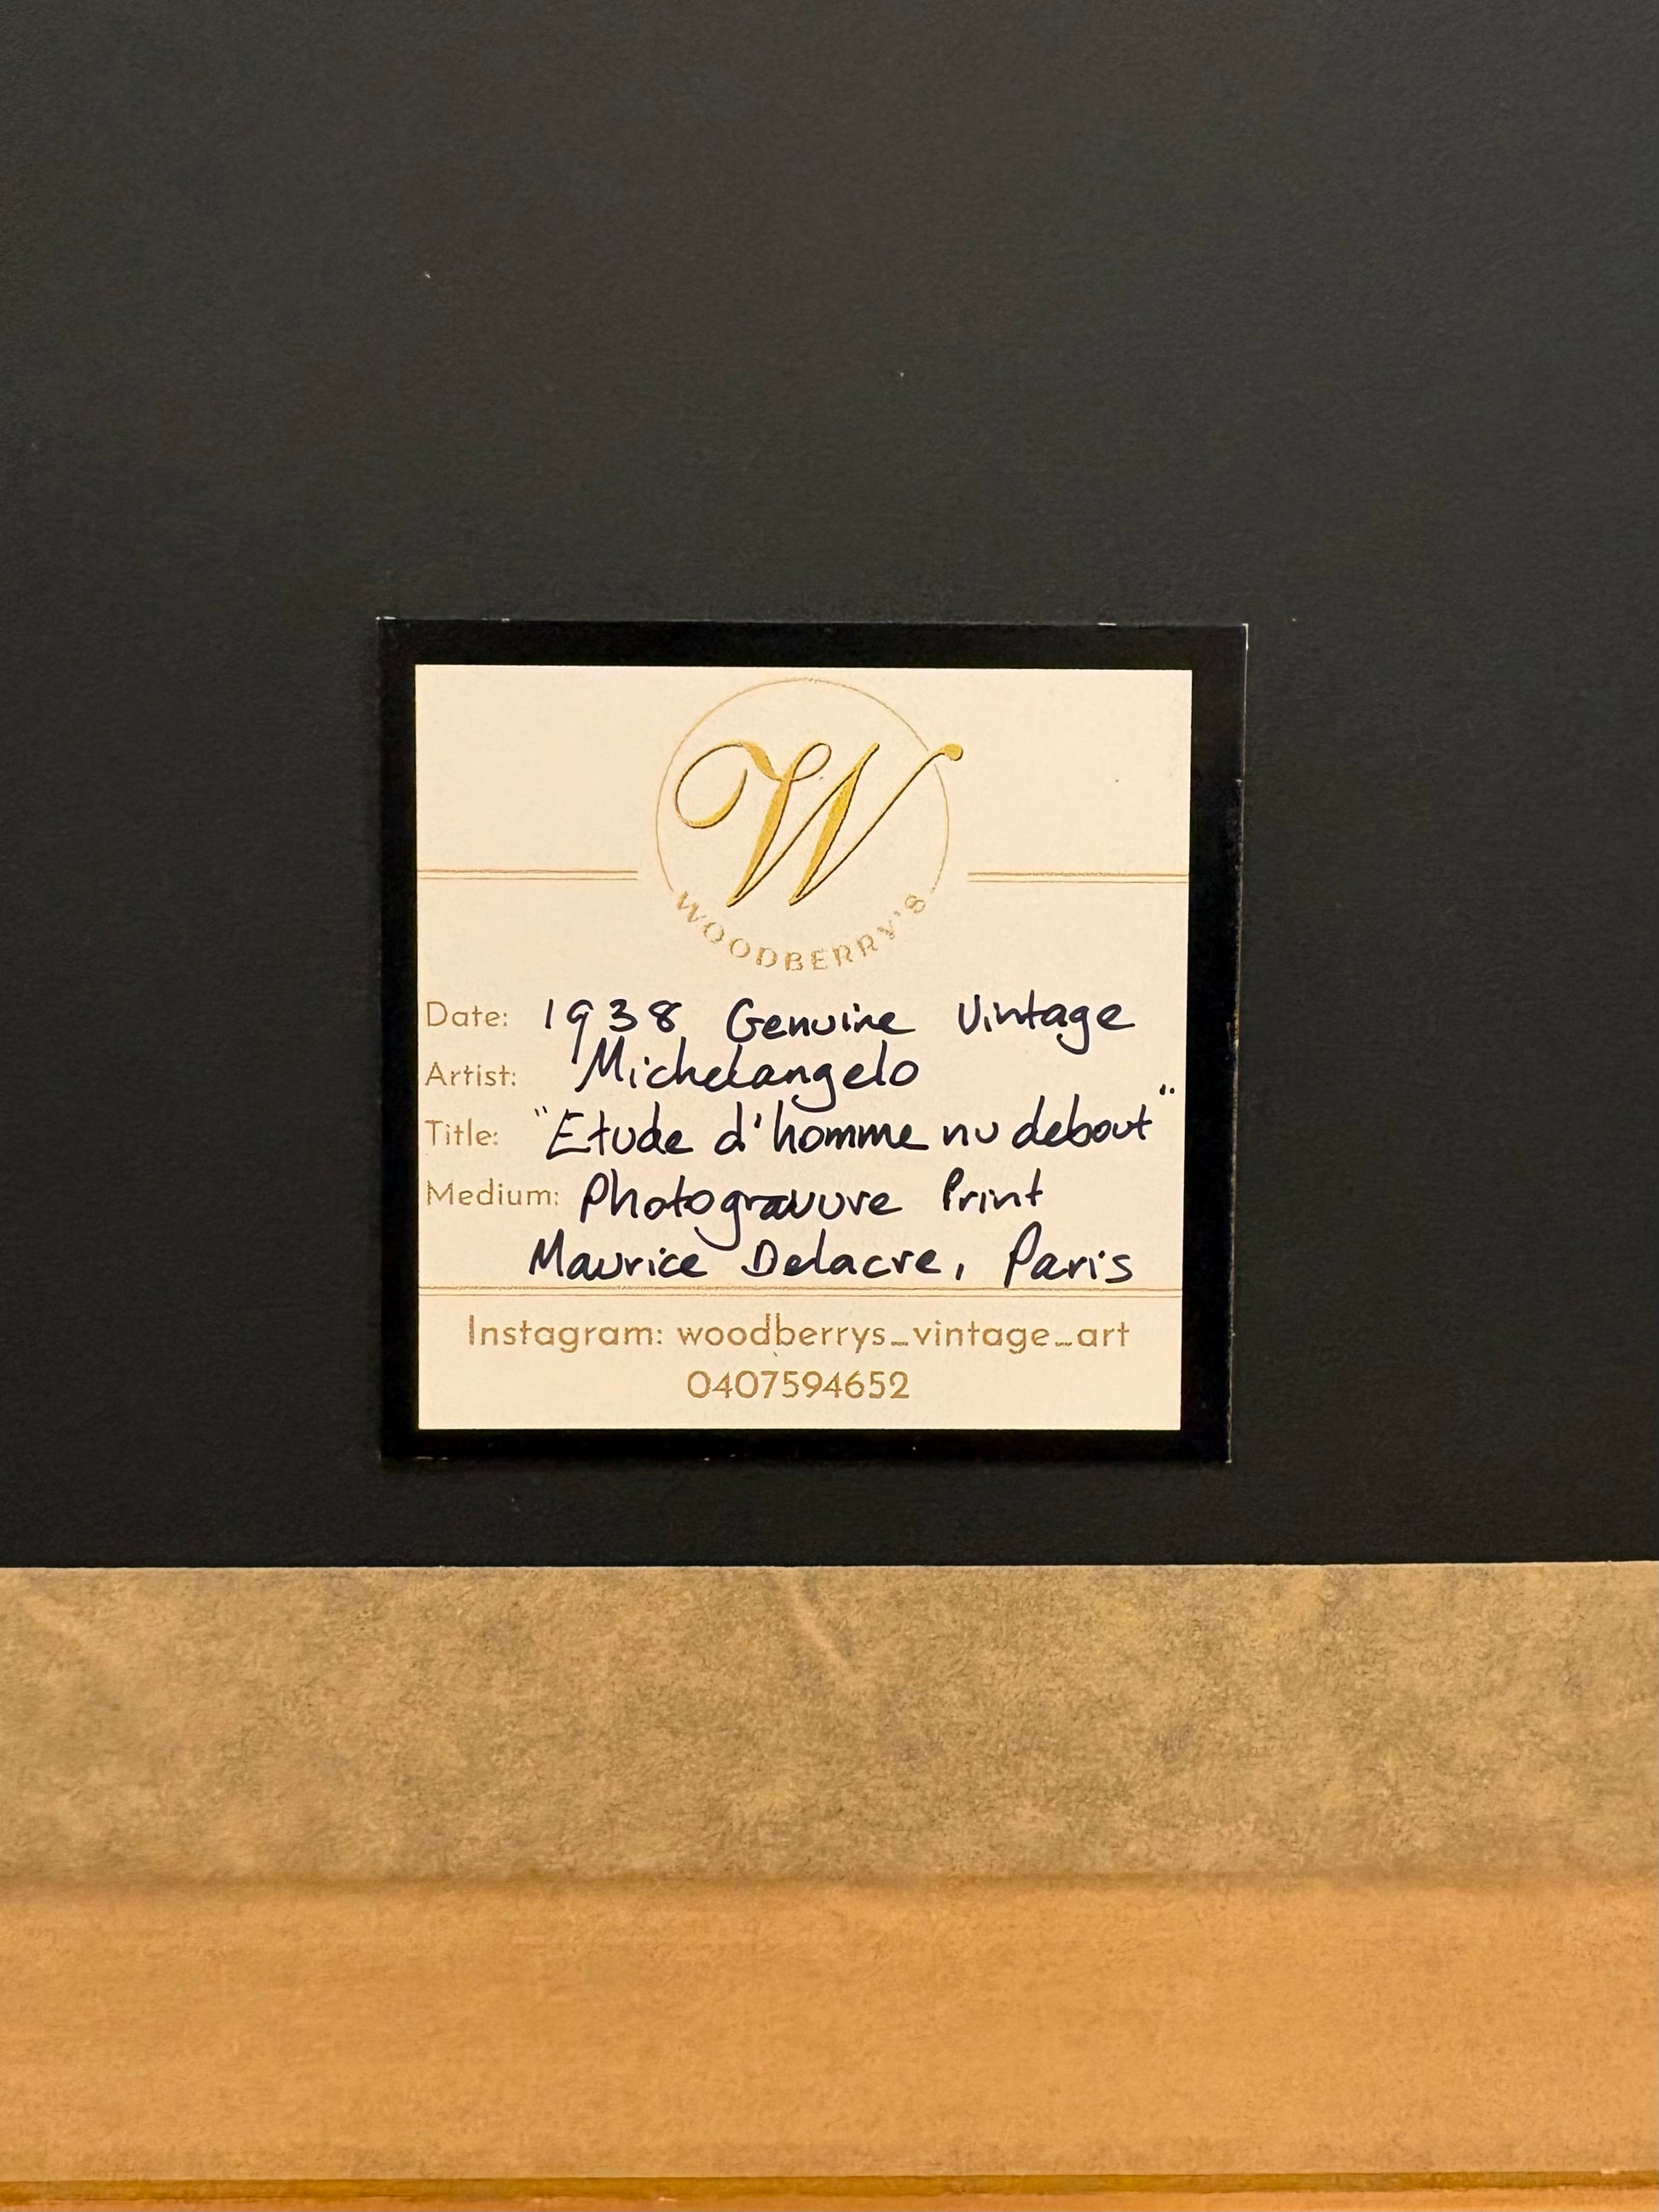 W
WOODBERRY'S
Date: 1938 Genuine Vintage
Artist: Michelangelo
Title: "Etude d'homme nu debout"
Medium: Photogravure Print
Maurice Delacre, Paris
Instagram: woodberrys_vintage_art
0407594652